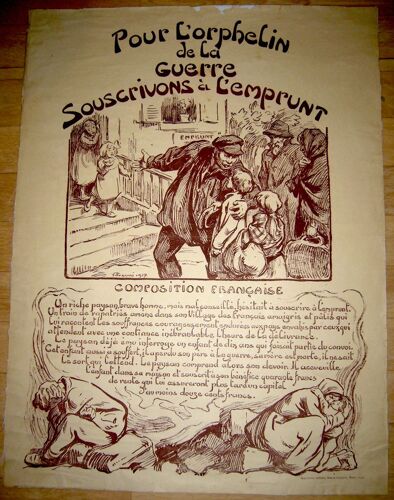 Pour L'orphelin
de la
Guerre
Souscrivons à L'emprunt
EMPRUNT
COMPOSITION FRANÇAISE
Un riche paysan, brave homme, mais mal conseillé, hésitant à souscrire à l'emprunt.
Un train de rapatriés amène dans son village des Français amaigris et pâlis qui
lui racontent les souffrances courageusement endurées aux pays envahis par ceux qui
attendent avec une confiance inébranlable l'heure de la délivrance.
Le paysan déjà ému interroge un enfant de dix ans qui faisait partie du convoi.
Cet enfant aussi a souffert, il a perdu son père à la guerre, sa mère est morte, il ne sait
le sort qui l'attend. Le paysan comprend alors son devoir. Il accueille
l'enfant dans sa maison et souscrit à son bénéfice quarante francs
de rente qui lui assureront plus tard un capital
d'au moins douze cents francs.